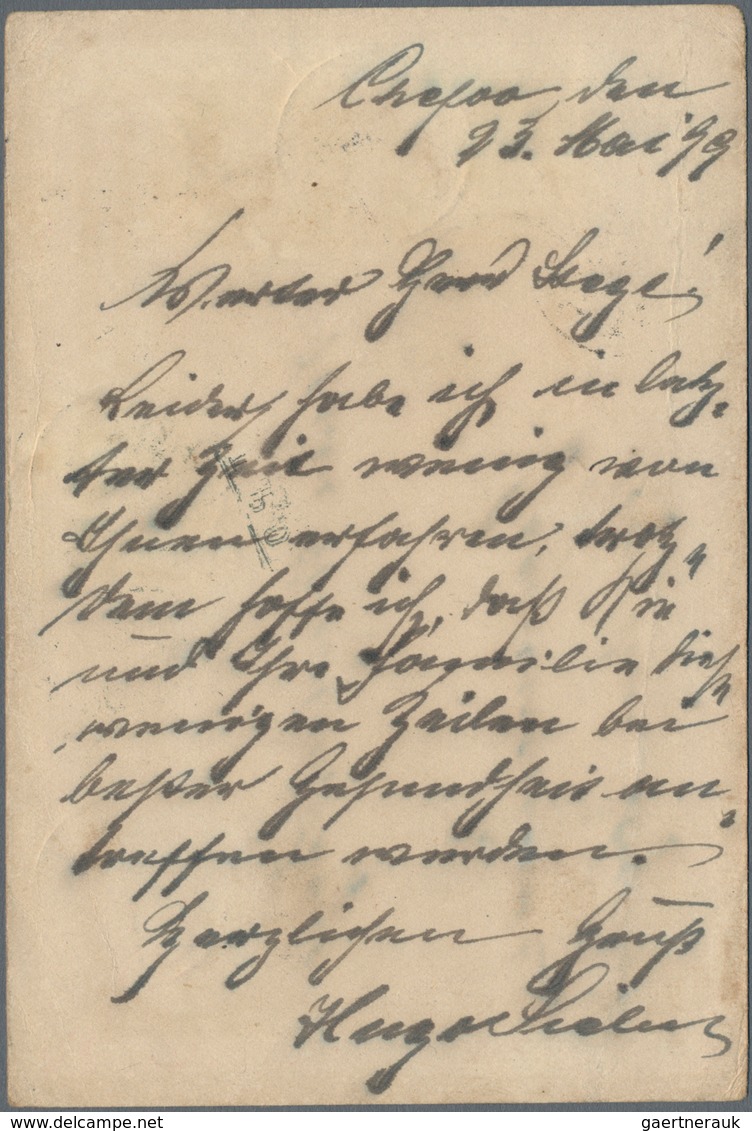 Chefoo, den
23. Mai 99
Werter Herr
Leider habe ich in letz-
ter Zeit wenig von
Ihnen erfahren, trotz-
dem hoffe ich, daß Sie
und Ihre Familie diese
wenigen Zeilen bei
bester Gesundheit an-
treffen werden.
Herzlichen Gruß
Hugo
gaertnerauk